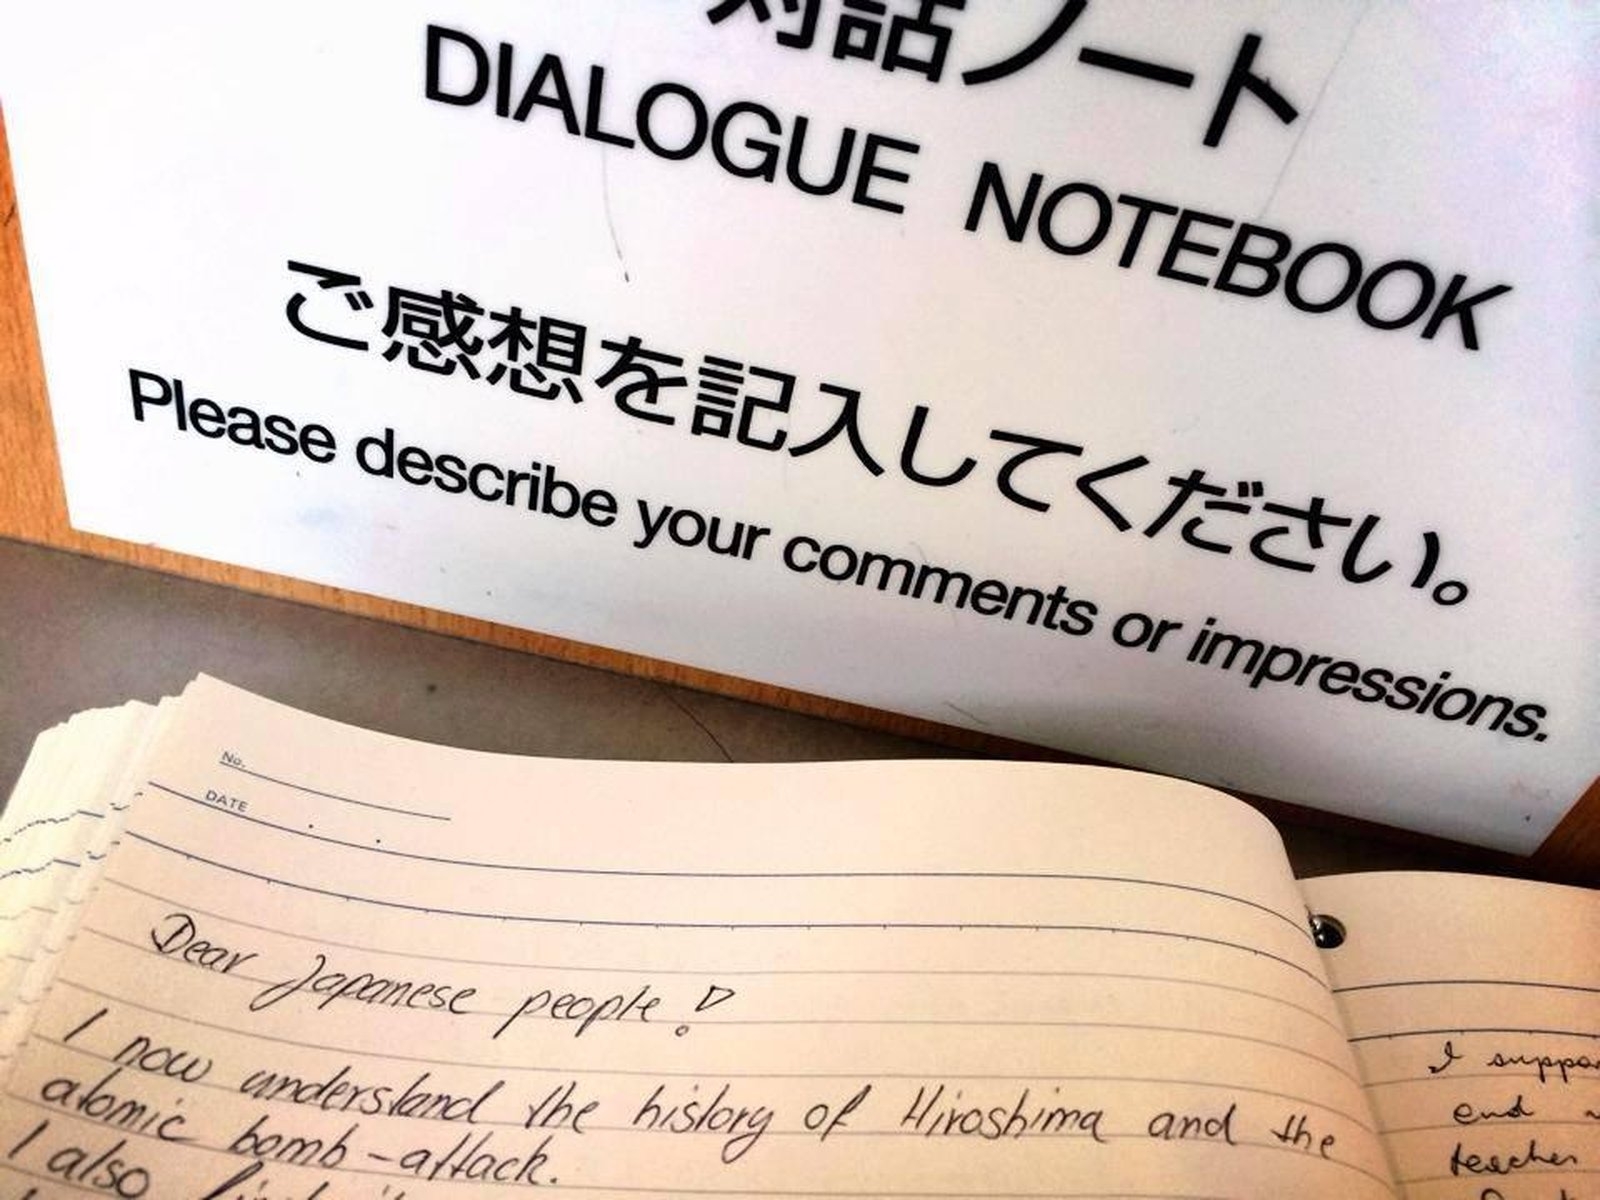 対話ノート
DIALOGUE NOTEBOOK
ご感想を記入してください。
Please describe your comments or impressions.
No.
DATE
Dear Japanese people!
I now understand the history of Hiroshima and the
atomic bomb-attack.
I also
I
end
teacher